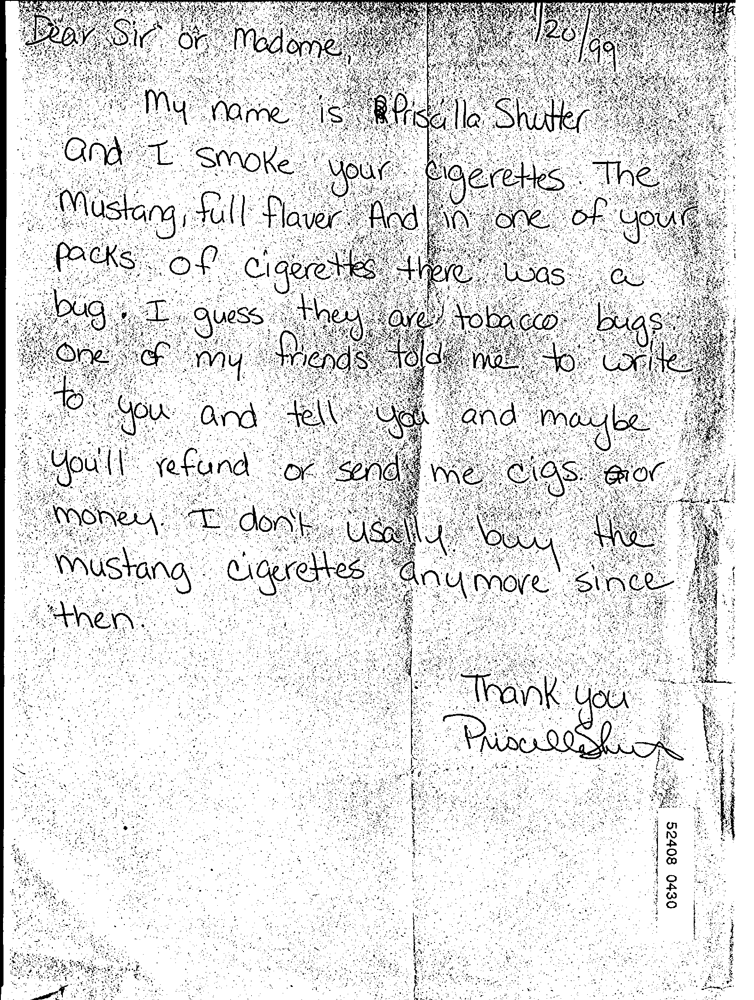 1/20/99
Dear Sir or Madome,
My name is Priscilla Shutter
and I smoke your cigerettes. The
Mustang, full flaver. And in one of your
packs of cigerettes there was a
bug. I guess they are tobacco bugs.
One of my friends told me to write
to you and tell you and maybe
you'll refund or send me cigs. or
money. I don't usally buy the
mustang cigerettes anymore since
then.
Thank you
Priscilla Shutter
52408 0430